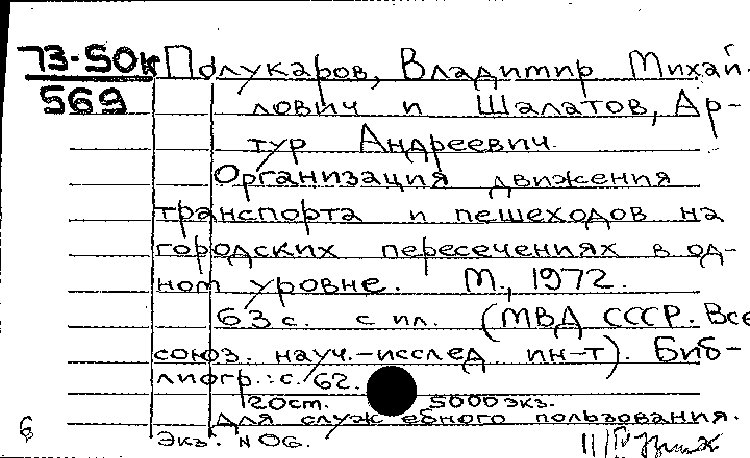 73-50к
569
Полукаров, Владимир Михай-
лович и Шалатов, Ар-
тур Андреевич.
Организация движения
транспорта и пешеходов на
городских пересечениях в од-
ном уровне. М., 1972.
63 с. с ил. (МВД СССР. Все
союз. науч.-исслед. ин-т). Биб-
лиогр.: с. 62.
20ст. 5000 экз.
Для служебного пользования.
Экз. № 06.
6